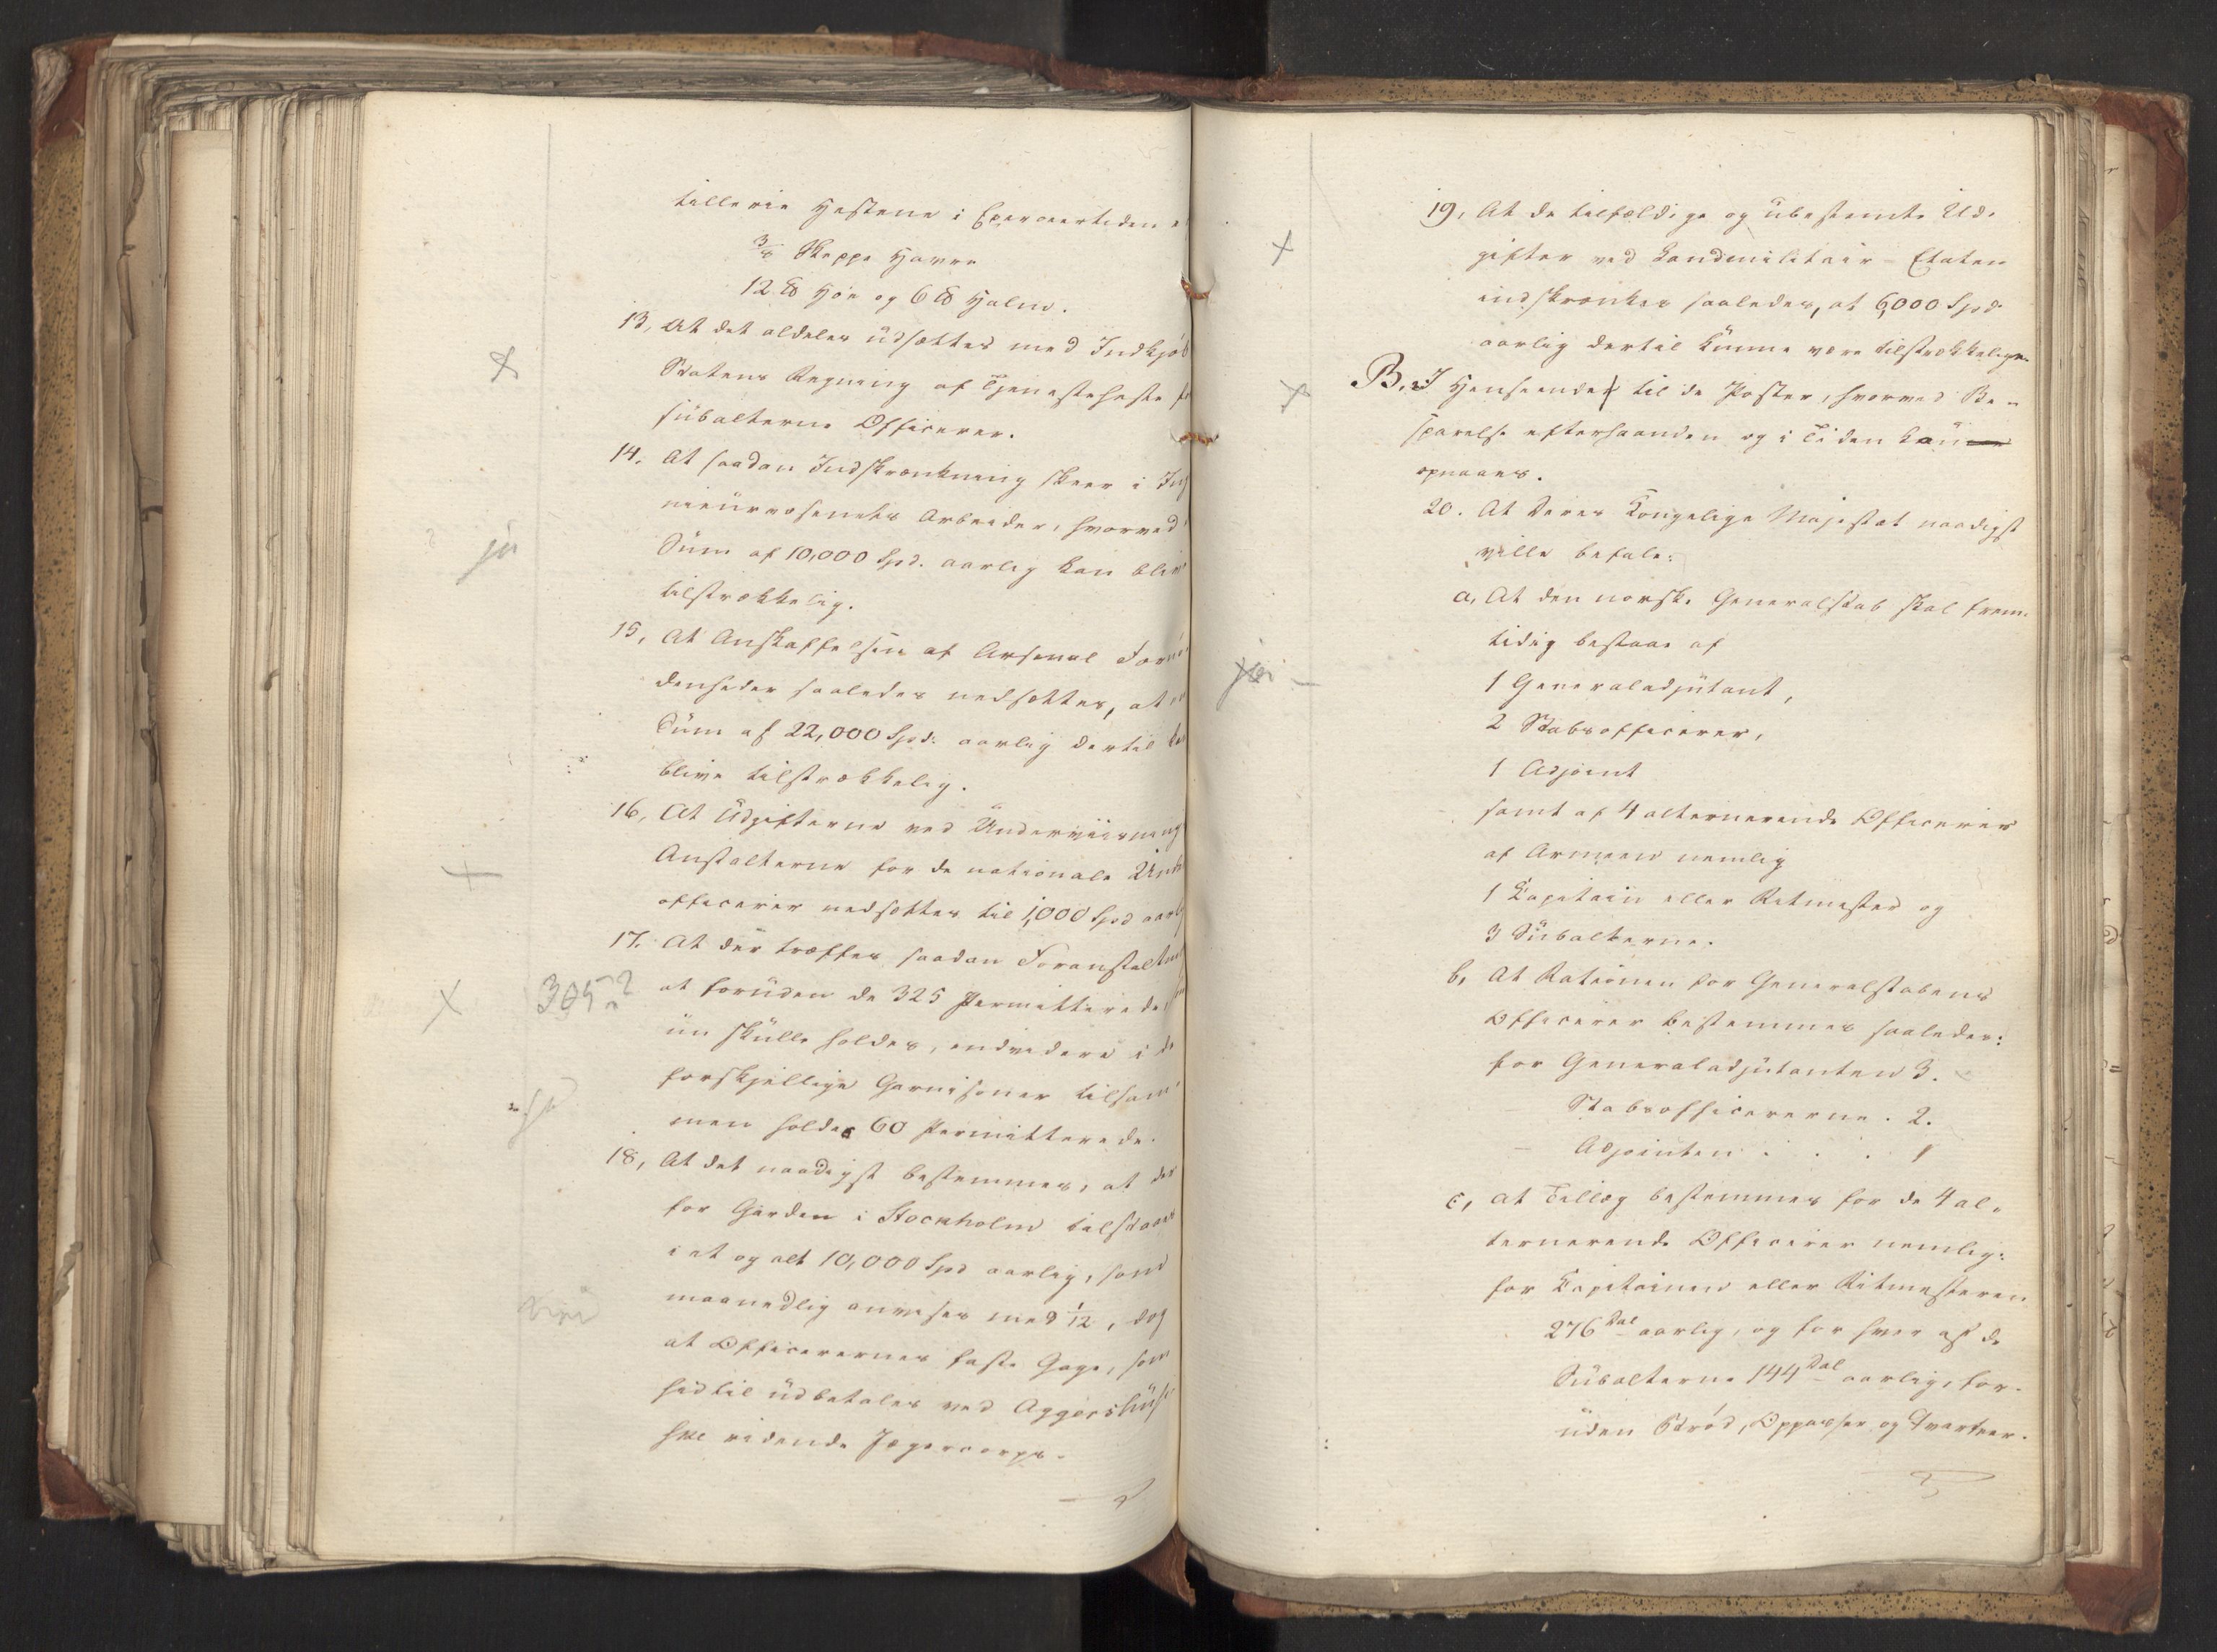 tillerie Hestene i Exerceertiden
3/8 Skeppe Havre
12 ℔ Høe og 6 ℔ Halm.
13, At det aldeles udsættes med Indkjøb
Statens Regning af Tjenesteheste
subalterne Officerer.
14. At saadan Indskrænkning skeer i Ing
nieurvæsenets Arbeider, hvorved
ja
Sum af 10,000 Spd. aarlig kan blive
tilstrækkelig.
15, At Anskaffelsen af Arsenal Fornø
denheder saaledes nedsættes, at en
Sum af 22,000 Spd. aarlig dertil
blive tilstrækkelig.
16, At Udgifterne ved Underviisning
Anstalterne for de nationale Und
officerer nedsættes til 1,000 Spd aarl
17. At der træffes saadan Foranstaltn
305?
at foruden de 325 Permitterede,
nu skulle holdes, endvidere i de
forskjellige Garnisoner tilsam
men holdes 60 Permitterede.
18, At det naadigst bestemmes, at der
for Garden i Stockholm tilstaaes
i et og alt 10,000 Spd aarlig, som
maanedlig anvises med 1/12, dog
at Officerernes faste Gage, som
hidtil udbetales ved Aggershus
ske ridende Jægercorps.
19, At de tilfældige og ubestemte Ud-
gifter ved Landmilitair-Etaten
indskrænkes saaledes, at 6,000 Spd
aarlig dertil kunne være tilstrækkelige.
B, I Henseende til de Poster, hvorved Be-
sparelse efterhaanden og i Tiden kan
opnaaes.
20. At Deres Kongelige Majestæt naadigst
ville befale:
a, At den norske Generalstab skal frem-
tidig bestaae af
1 Generaladjutant,
2 Stabsofficerer,
1 Adjoint
samt af 4 alternerende Officerer
af Armeen nemlig
1 Kapitain eller Ritmester og
3 Subalterne.
b, At Rationen for Generalstabens
Officerer bestemmes saaledes:
for Generaladjutanten 3.
— Stabsofficererne . 2.
— Adjointen . . . 1
c, at Tillæg bestemmes for de 4 al-
ternerende Officerer nemlig:
for Kapitainen eller Ritmesteren
276 Dal aarlig, og for hver af de
Subalterne 144 Dal aarlig, for-
uden Brød, Oppasser og Qvarteer.